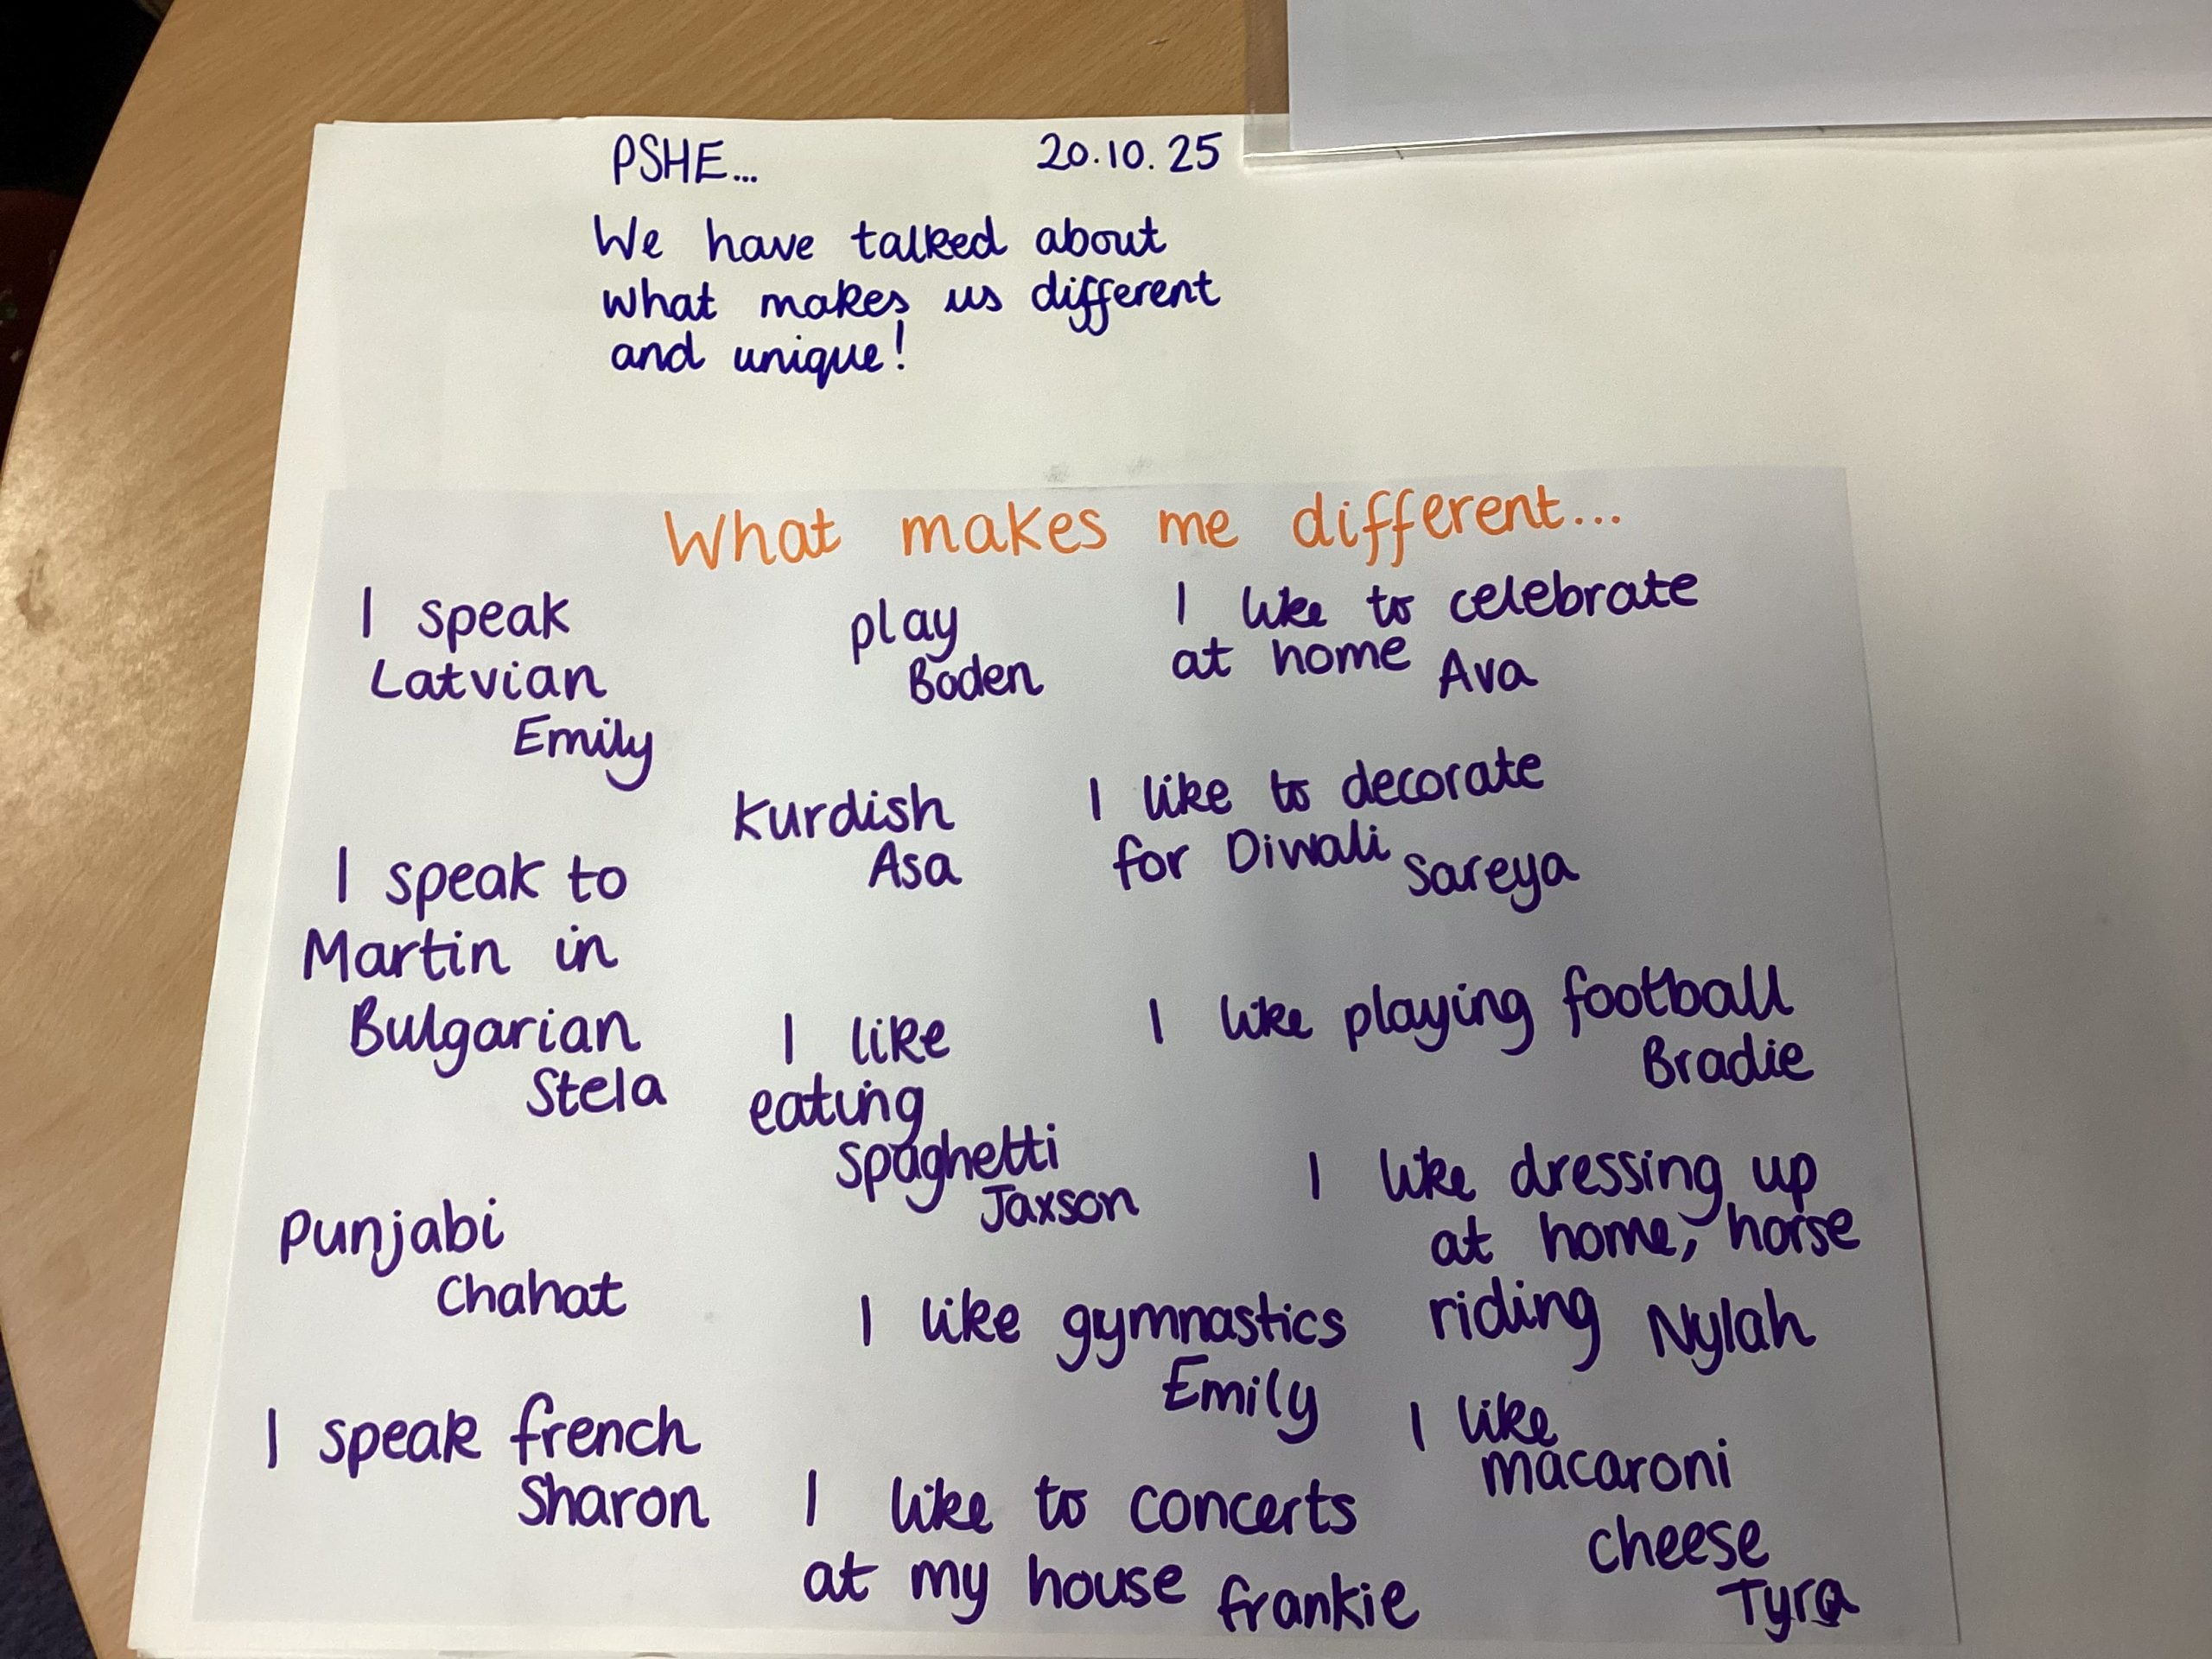 PSHE... 20.10.25
We have talked about
what makes us different
and unique!
What makes me different...
I speak
Latvian
Emily
play
Boden
I like to celebrate
at home Ava
Kurdish
Asa
I like to decorate
for Diwali Sareya
I speak to
Martin in
Bulgarian
Stela
I like
eating
spaghetti
Jaxson
I like playing football
Bradie
Punjabi
Chahat
I like dressing up
at home, horse
riding Nylah
I like gymnastics
Emily
I speak french
Sharon
I like to concerts
at my house frankie
I like
macaroni
cheese
Tyra